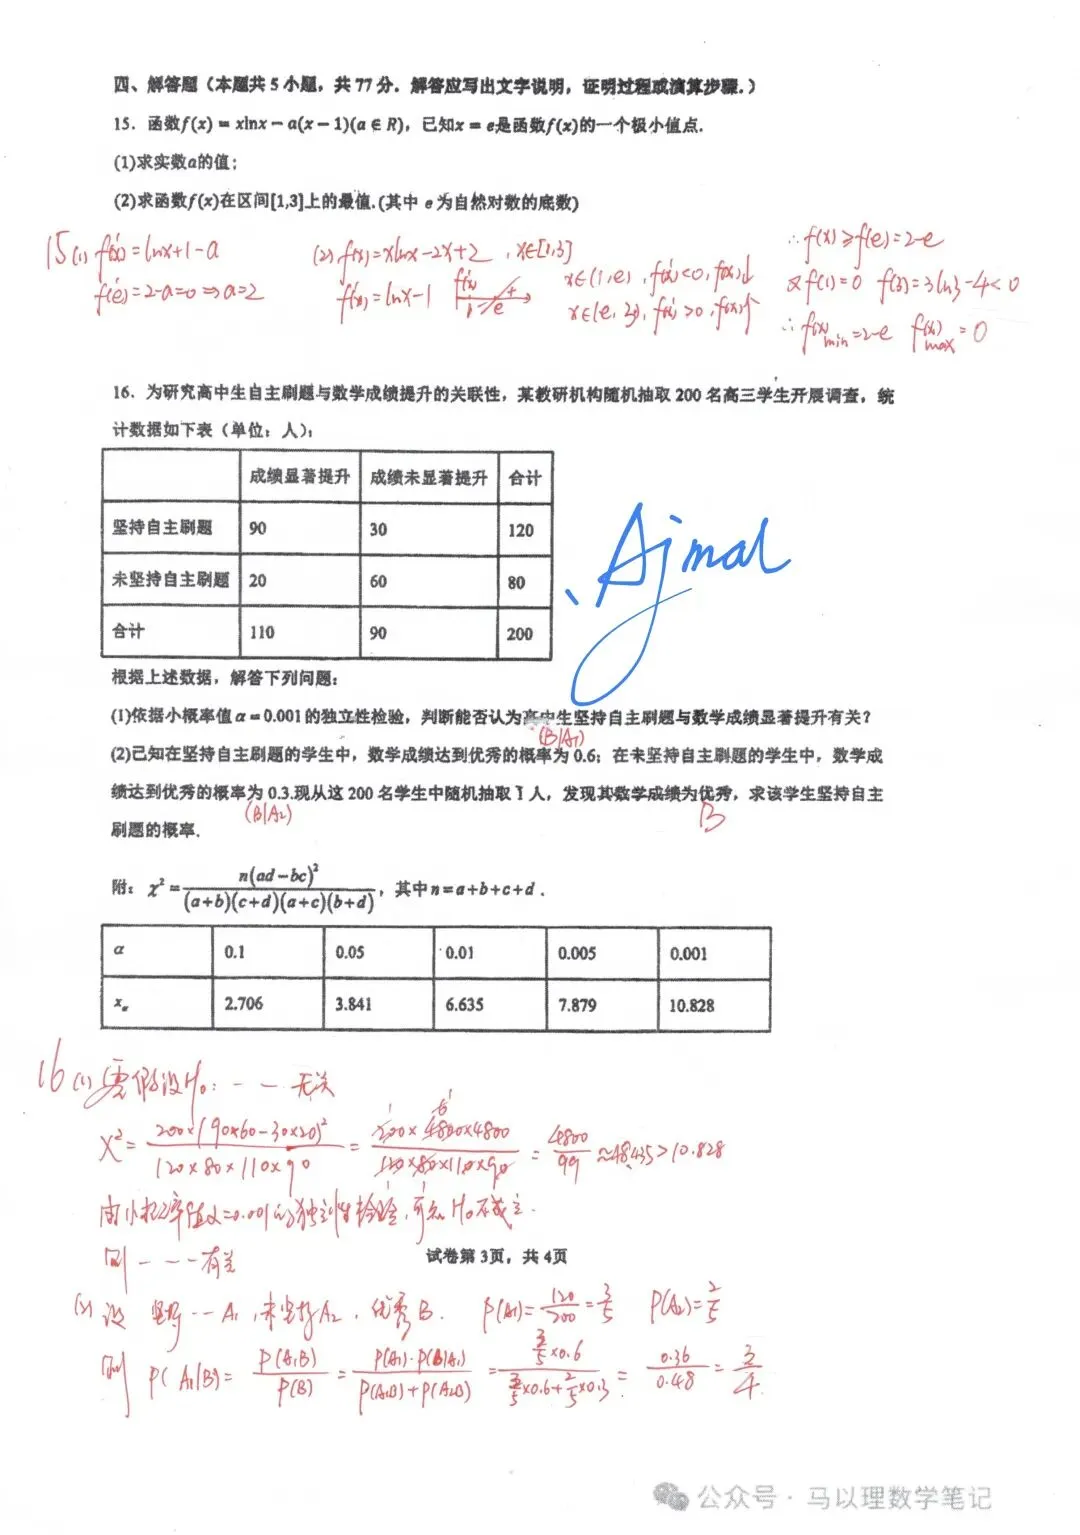 四、解答题（本题共 5 小题，共 77 分．解答应写出文字说明，证明过程或演算步骤.）
15．函数f(x) = xlnx − a(x − 1)(a ∈ R)，已知x = e是函数f(x)的一个极小值点.
(1)求实数a的值；
(2)求函数f(x)在区间[1,3]上的最值.(其中 e 为自然对数的底数)
15 (1) f'(x)=lnx+1−a
f'(e)=2−a=0⇒a=2
(2) f(x)=xlnx−2x+2 , x∈[1,3]
f'(x)=lnx−1
f'(x) − + 1 e
x∈(1,e), f'(x)<0, f(x)↓
x∈(e,3), f'(x)>0, f(x)↑
∴f(x)≥f(e)=2−e
又f(1)=0 f(3)=3ln3−4<0
∴f(x)min=2−e f(x)max=0
16．为研究高中生自主刷题与数学成绩提升的关联性，某教研机构随机抽取 200 名高三学生开展调查，统
计数据如下表（单位：人）：
成绩显著提升 成绩未显著提升 合计
坚持自主刷题 90 30 120
未坚持自主刷题 20 60 80
合计 110 90 200
Ajmal
根据上述数据，解答下列问题：
(1)依据小概率值 α = 0.001 的独立性检验，判断能否认为高中生坚持自主刷题与数学成绩显著提升有关？
(B|A1)
(2)已知在坚持自主刷题的学生中，数学成绩达到优秀的概率为 0.6；在未坚持自主刷题的学生中，数学成
绩达到优秀的概率为 0.3.现从这 200 名学生中随机抽取 1 人，发现其数学成绩为优秀，求该学生坚持自主
(B|A2) B
刷题的概率.
附：χ²= n(ad−bc)² / (a+b)(c+d)(a+c)(b+d)，其中 n=a+b+c+d．
α 0.1 0.05 0.01 0.005 0.001
xα 2.706 3.841 6.635 7.879 10.828
16 (1) 零假设H₀：－－无关
X²= 200×(90×60−30×20)² / 120×80×110×90 = 200×4800×4800 / 120×80×110×90 = 4800/99 ≈48.485>10.828
由小概率值α=0.001的独立性检验，可知H₀不成立.
则－－－有关
试卷第 3页，共 4页
(2) 设 坚持－－A₁, 未坚持A₂, 优秀B. P(A₁)=120/200=3/5 P(A₂)=2/5
则 P(A₁|B)= P(A₁B)/P(B) = P(A₁)·P(B|A₁) / P(A₁B)+P(A₂B) = 3/5×0.6 / 3/5×0.6+2/5×0.3 = 0.36/0.48 = 3/4
公众号 · 马以理数学笔记